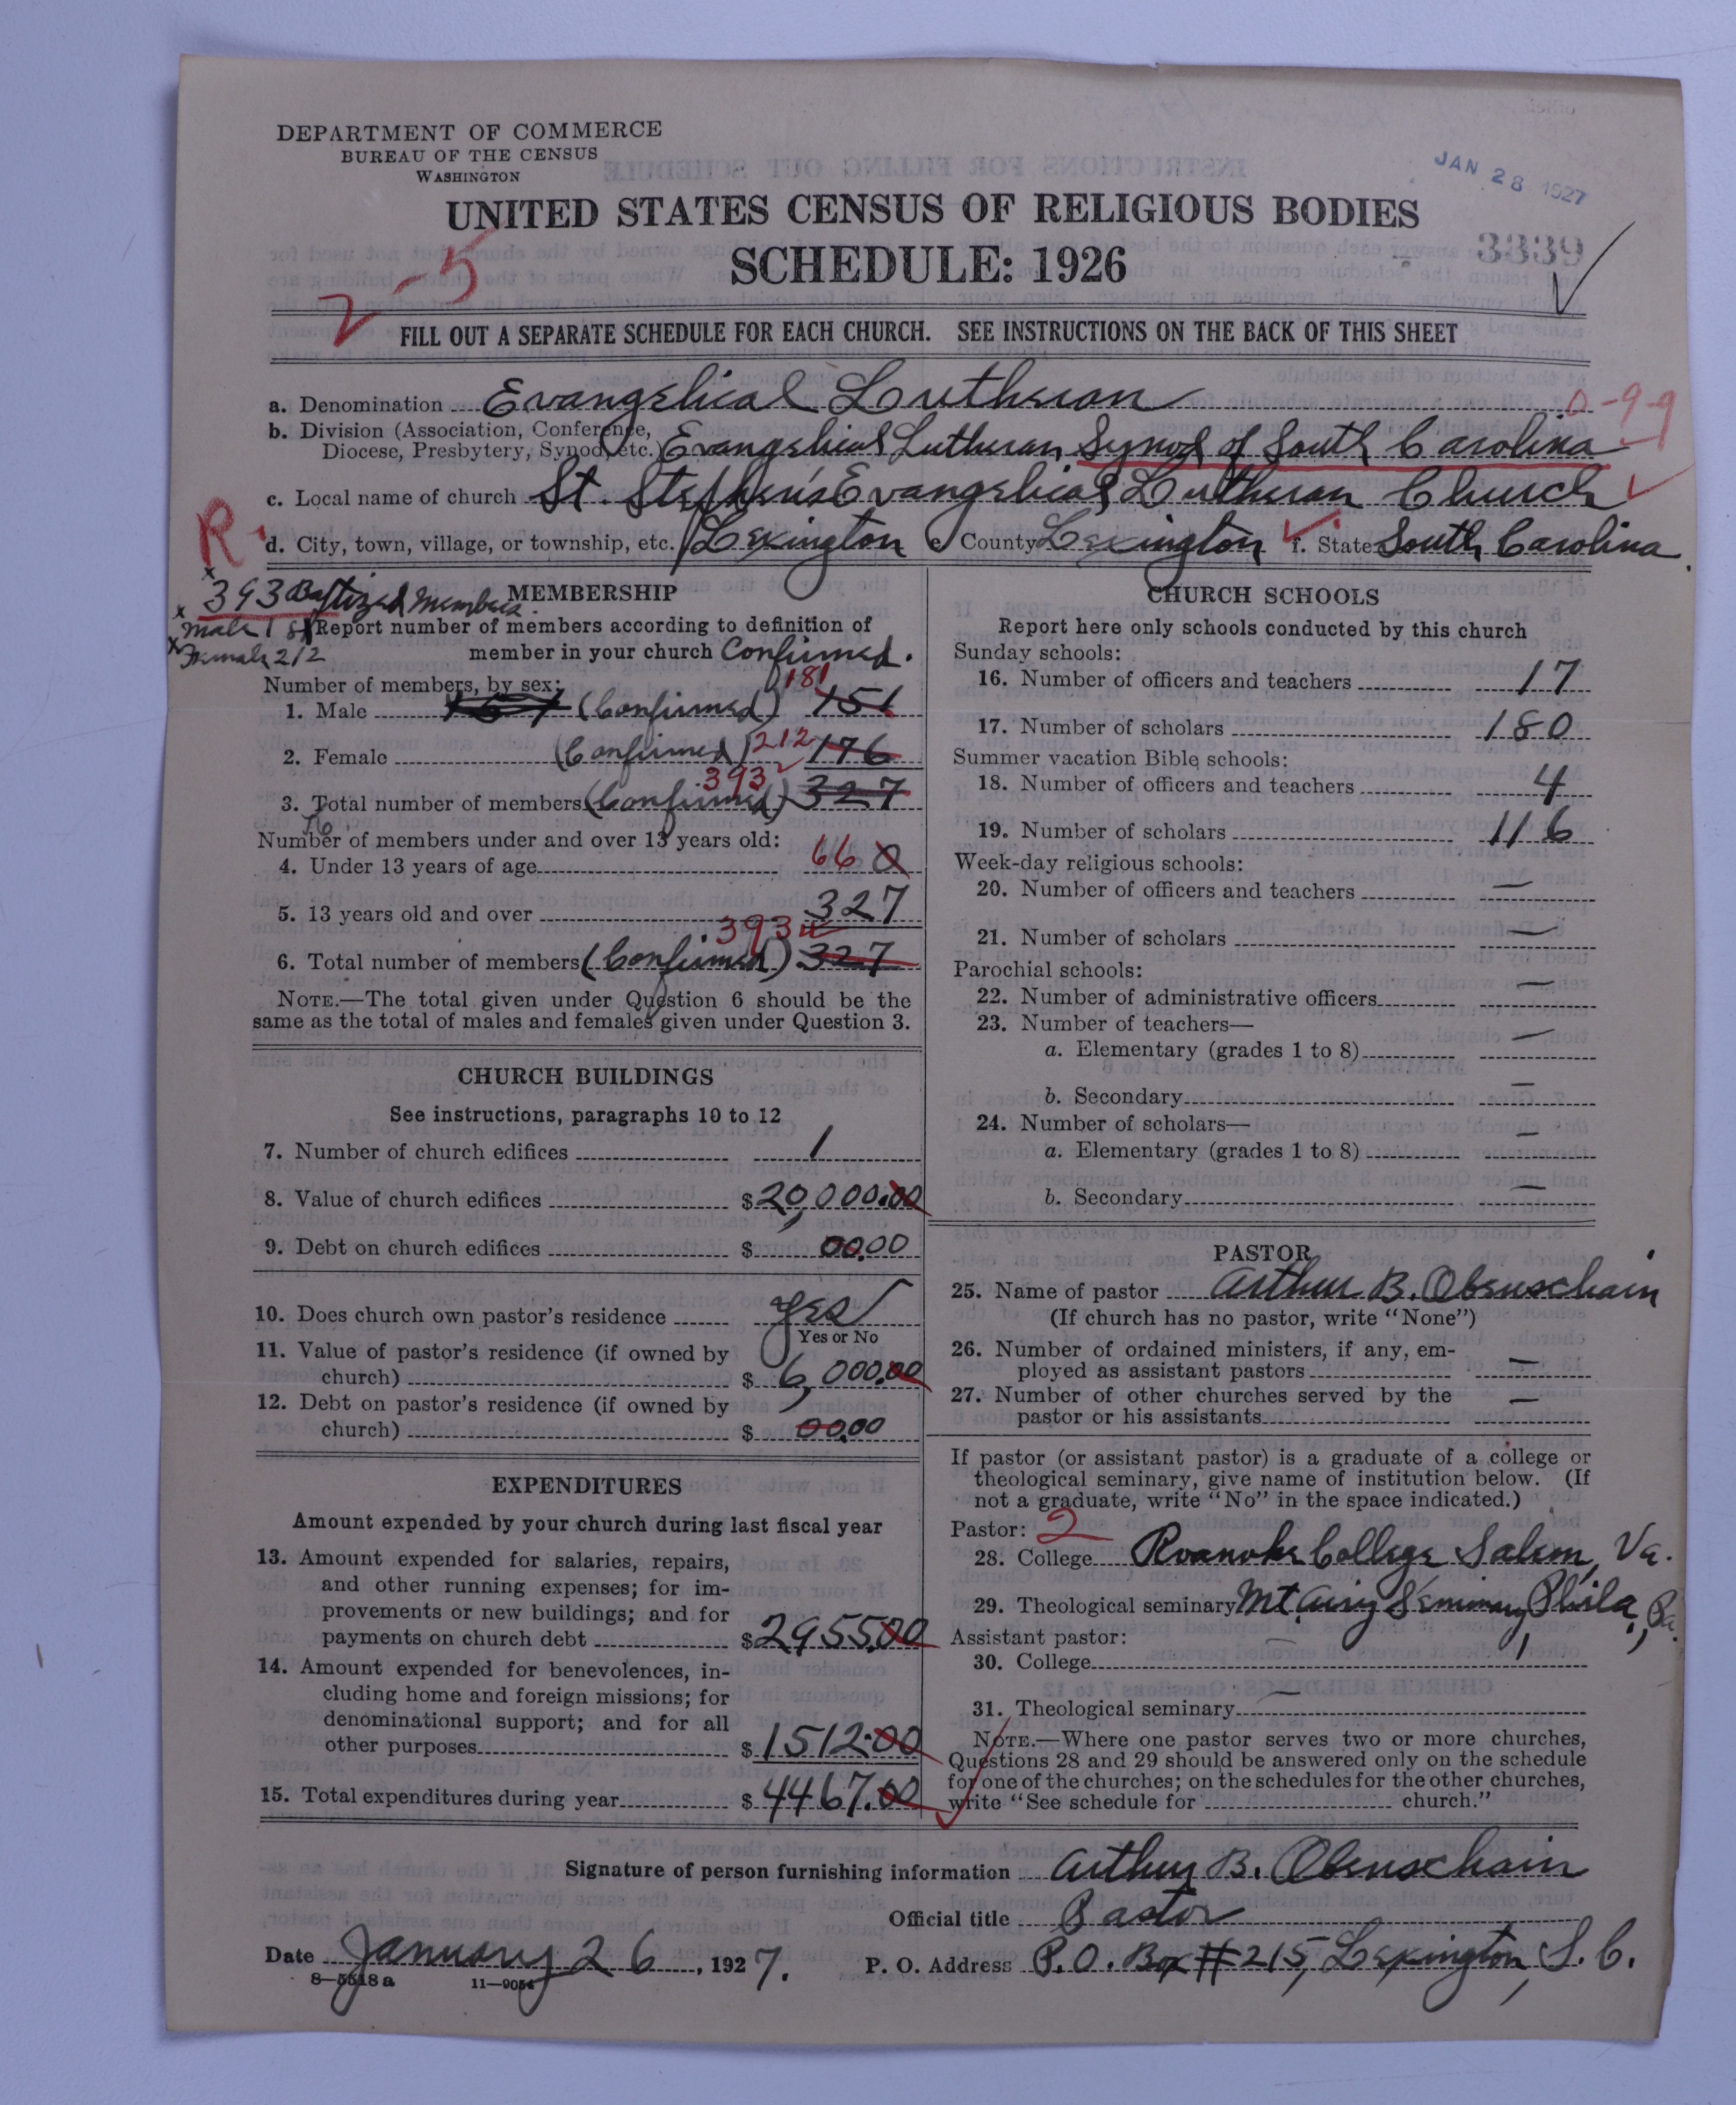 DEPARTMENT OF COMMERCE
BUREAU OF THE CENSUS
WASHINGTON
JAN 28 1927
UNITED STATES CENSUS OF RELIGIOUS BODIES
SCHEDULE: 1926
3339
2-5
FILL OUT A SEPARATE SCHEDULE FOR EACH CHURCH. SEE INSTRUCTIONS ON THE BACK OF THIS SHEET
a. Denomination Evangelical Lutheran
0-9-9
b. Division (Association, Conference,
Diocese, Presbytery, Synod, etc.) Evangelical Lutheran Synod of South Carolina
c. Local name of church St. Stephen's Evangelical Lutheran Church
R
d. City, town, village, or township, etc. Lexington e. County Lexington f. State South Carolina
x 393 Baptized Members.
x Male 181
x Female 212
MEMBERSHIP
Report number of members according to definition of
member in your church Confirmed.
Number of members, by sex:
1. Male (Confirmed) 181 151
2. Female (Confirmed) 212 176
3. Total number of members (Confirmed) 393 327
Number of members under and over 13 years old:
4. Under 13 years of age 66 0
5. 13 years old and over 327
6. Total number of members (Confirmed) 393 327
NOTE.—The total given under Question 6 should be the
same as the total of males and females given under Question 3.
CHURCH BUILDINGS
See instructions, paragraphs 10 to 12
7. Number of church edifices 1
8. Value of church edifices $20,000.00
9. Debt on church edifices $ 00.00
10. Does church own pastor's residence yes
Yes or No
11. Value of pastor's residence (if owned by
church) $ 6,000.00
12. Debt on pastor's residence (if owned by
church) $ 00.00
EXPENDITURES
Amount expended by your church during last fiscal year
13. Amount expended for salaries, repairs,
and other running expenses; for im-
provements or new buildings; and for
payments on church debt $2955.00
14. Amount expended for benevolences, in-
cluding home and foreign missions; for
denominational support; and for all
other purposes $1512.00
15. Total expenditures during year $4467.00
CHURCH SCHOOLS
Report here only schools conducted by this church
Sunday schools:
16. Number of officers and teachers 17
17. Number of scholars 180
Summer vacation Bible schools:
18. Number of officers and teachers 4
19. Number of scholars 116
Week-day religious schools:
20. Number of officers and teachers —
21. Number of scholars —
Parochial schools:
22. Number of administrative officers —
23. Number of teachers—
a. Elementary (grades 1 to 8) —
b. Secondary —
24. Number of scholars—
a. Elementary (grades 1 to 8) —
b. Secondary —
PASTOR
25. Name of pastor Arthur B. Obenschain
(If church has no pastor, write "None")
26. Number of ordained ministers, if any, em-
ployed as assistant pastors —
27. Number of other churches served by the
pastor or his assistants —
If pastor (or assistant pastor) is a graduate of a college or
theological seminary, give name of institution below. (If
not a graduate, write "No" in the space indicated.)
Pastor: 2
28. College Roanoke College Salem, Va.
29. Theological seminary Mt. Airy Seminary, Phila., Pa.
Assistant pastor:
30. College —
31. Theological seminary —
NOTE.—Where one pastor serves two or more churches,
Questions 28 and 29 should be answered only on the schedule
for one of the churches; on the schedules for the other churches,
write "See schedule for church."
Signature of person furnishing information Arthur B. Obenschain
Official title Pastor
Date January 26, 1927.
P. O. Address P.O. Box #215, Lexington, S.C.
8—5518 a 11—9054